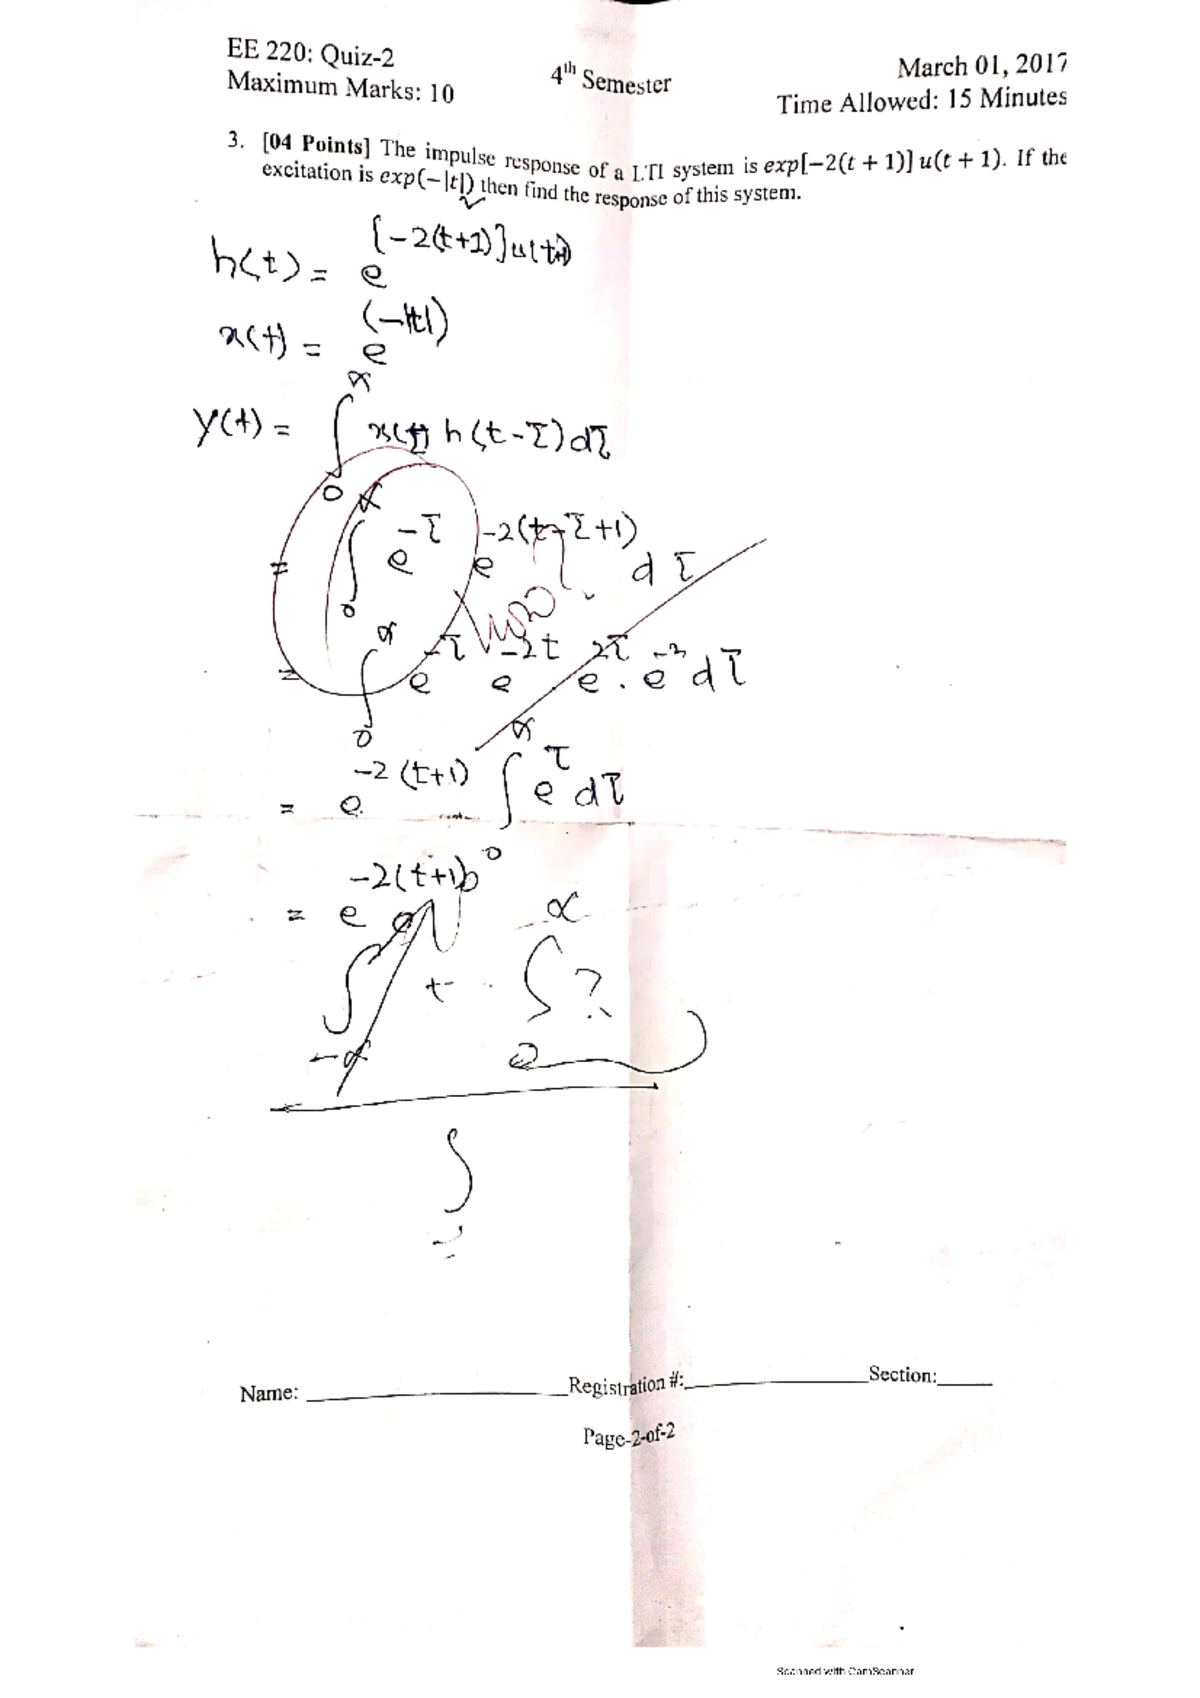 EE 220: Quiz-2 4th Semester March 01, 2017
Maximum Marks: 10 Time Allowed: 15 Minutes
3. [04 Points] The impulse response of a LTI system is exp[−2(t + 1)] u(t + 1). If the
excitation is exp(−|t|) then find the response of this system.
h(t) = e^[-2(t+1)]u(t+1)
x(t) = e^(-|t|)
y(t) = ∫_0^∝ x(τ) h(t-τ)dτ
= ∫_0^∝ e^-τ e^-2(t-τ+1) dτ
= ∫_0^∝ e^-τ e^-2t e^2τ . e^-2 dτ
= e^-2(t+1) ∫_0^∝ e^τ dτ
= e^-2(t+1)
∫_-∝ + ∫^∝ ?
∫
Name: Registration #: Section:
Page-2-of-2
Scanned with CamScanner